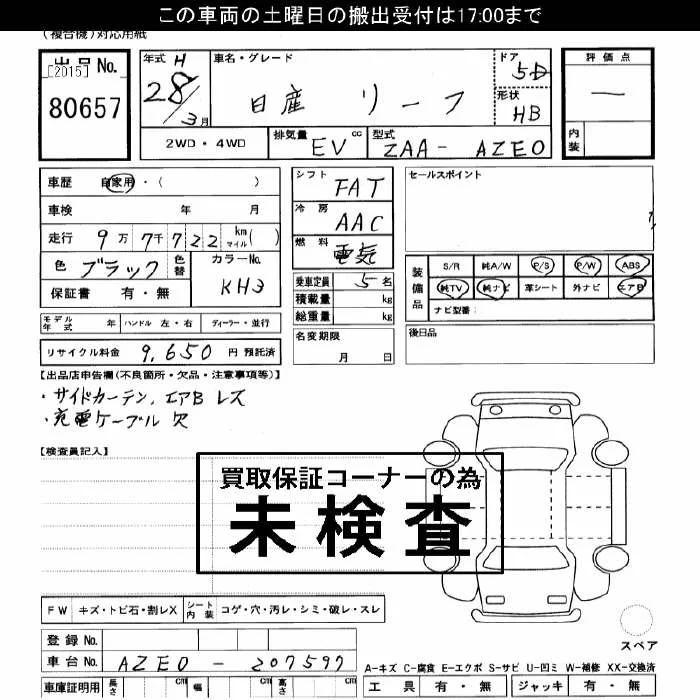 この車両の土曜日の搬出受付は17:00まで
(複合機)対応用紙
出品No.
[2015]
80657
年式 H
28/3月
車名・グレード
日産 リーフ
ドア
5D
形状
HB
評価点
—
内装
2WD・4WD
排気量 EV cc
型式 ZAA-AZE0
車歴 自家用・( )
車検 年 月
走行 9万7千722 km マイル( )
色 ブラック 色替
カラーNo.
KH3
保証書 有・無
シフト FAT
冷房 AAC
燃料 電気
乗車定員 5名
積載量 kg
総重量 kg
名変期限
月 日
セールスポイント
装備品
S/R 純A/W P/S P/W ABS
純TV 純ナビ 革シート 外ナビ エアB
ナビ型番:
後日品
モデル年式 年 ハンドル 左・右 ディーラー・並行
リサイクル料金 9,650 円 預託済
【出品店申告欄(不良箇所・欠品・注意事項等)】
・サイドカーテン、エアB レス
・充電ケーブル 欠
【検査員記入】
買取保証コーナーの為
未検査
FW キズ・トビ石・割レX シート内装 コゲ・穴・汚レ・シミ・破レ・スレ
スペア
登録No.
車台No. AZE0-207597
A-キズ C-腐食 E-エクボ S-サビ U-凹ミ W-補修 XX-交換済
車庫証明用 長さ cm 幅 cm 高さ cm
工具 有・無 ジャッキ 有・無